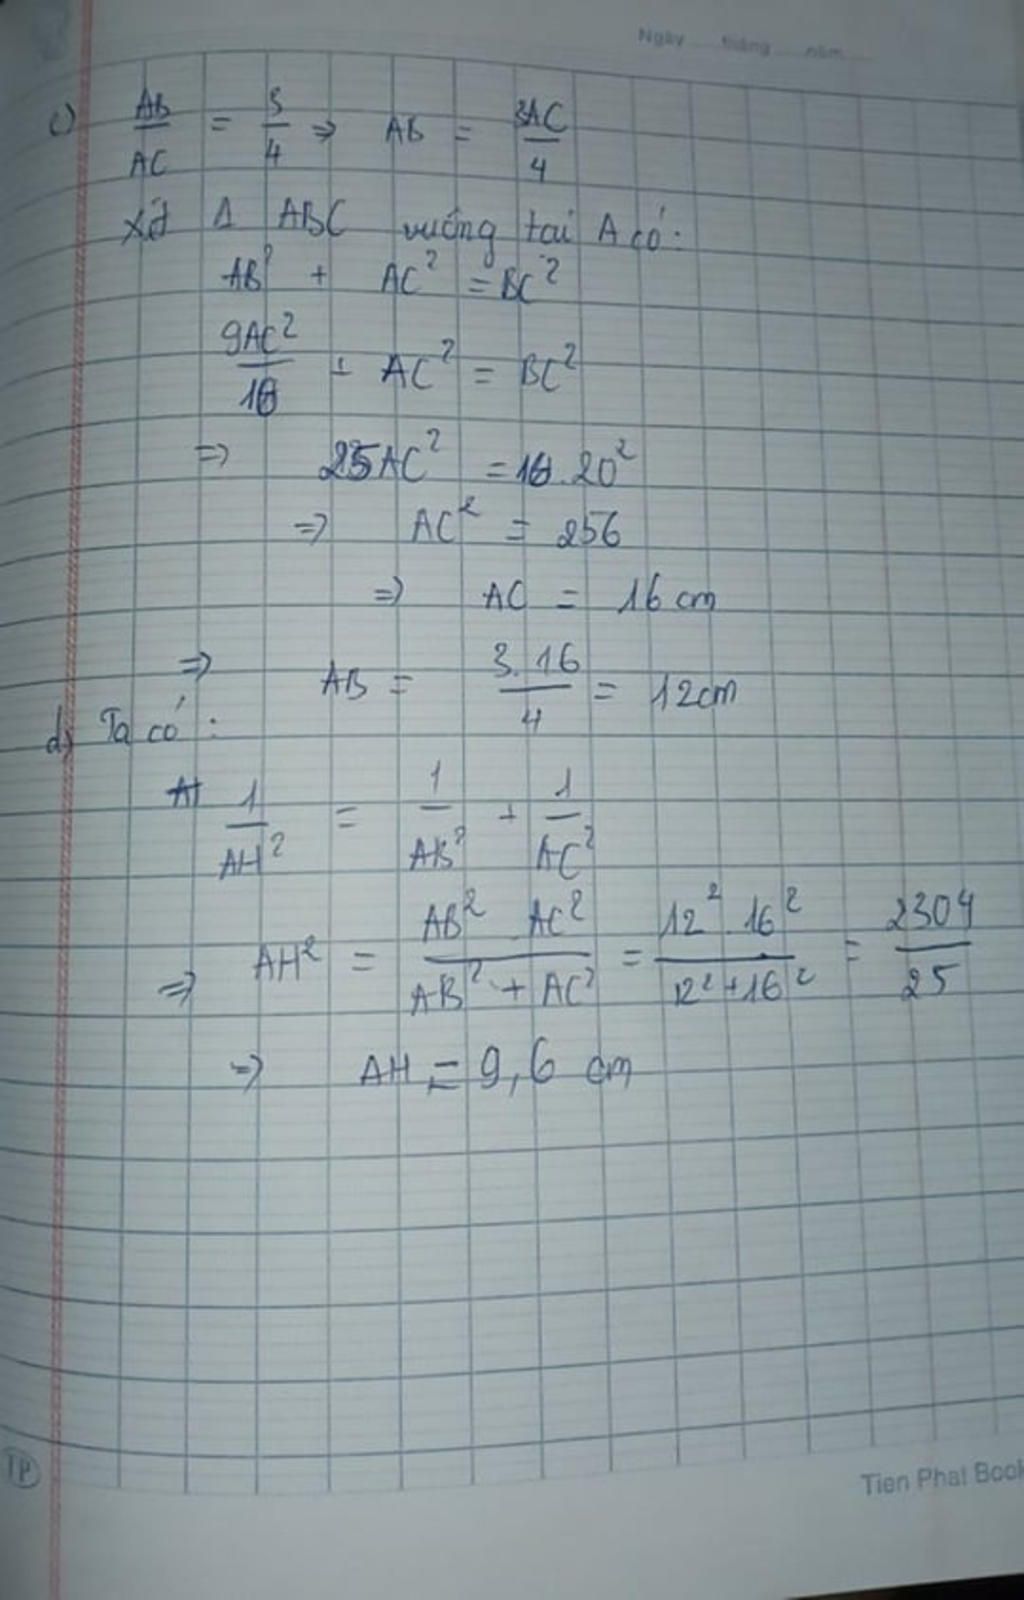 Ngày tháng năm
c) AB/AC = 3/4 => AB = 3AC/4
Xét Δ ABC vuông tại A có:
AB² + AC² = BC²
9AC²/16 + AC² = BC²
=> 25AC² = 16.20²
=> AC² = 256
=> AC = 16 cm
=> AB = 3.16/4 = 12cm
d) Ta có:
1/AH² = 1/AB² + 1/AC²
=> AH² = AB² . AC²/AB² + AC² = 12² . 16²/12² + 16² = 2304/25
=> AH = 9,6 cm
TP
Tien Phat Book